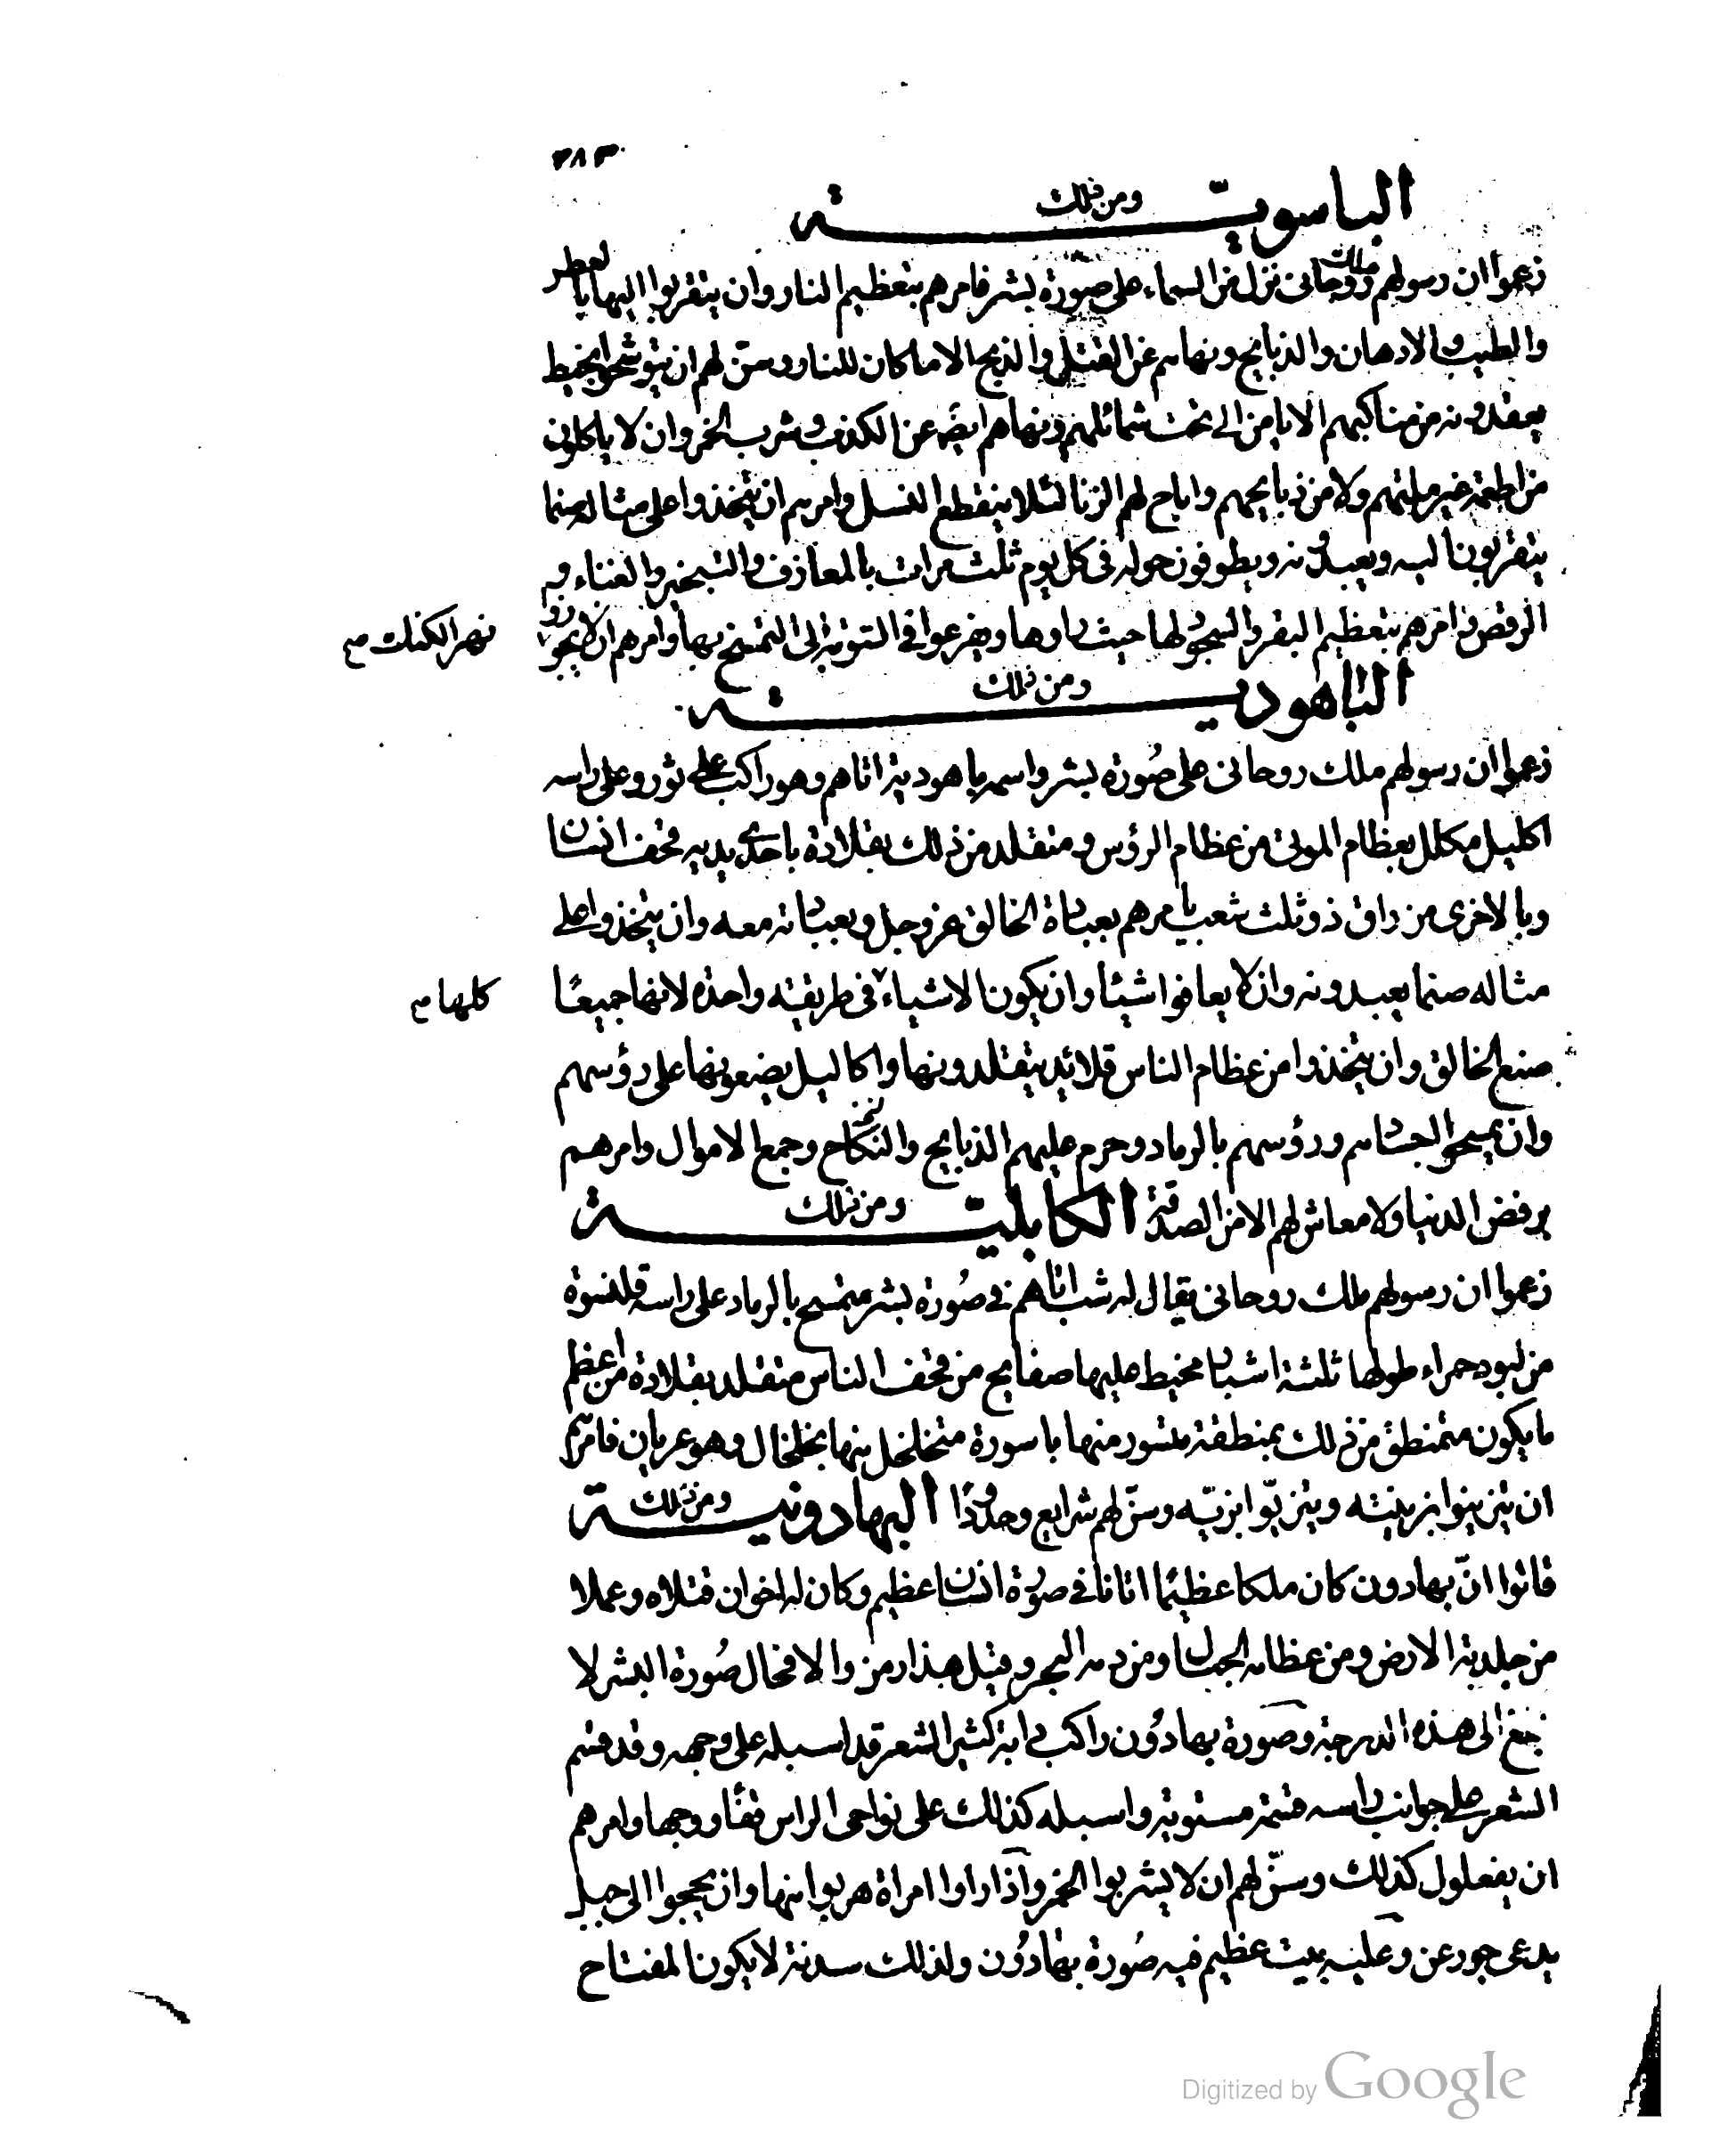 ٣٨٣
ومن ذلك الباسوية
زعموا ان رسولهم ملك روحانى نزل من السماء على صورة بشر فامرهم بتعظيم النار وان يتقربوا اليها بالعطر
والطيب والادهان والذبايح ونهاهم عن القتل والذبح الا ما كان للنار وسن لهم ان يتوشحوا بخيط
يعقدونه من مناكبهم الايامن الى تحت شمائلهم ونهاهم ايضا عن الكذب وشرب الخمر وان لا ياكلون
من اطعمة غير ملتهم ولا من ذبايحهم واباح لهم الزنا لئلا ينقطع النسل وامرهم ان يتخذوا على مثاله صنما
يتقربون اليه ويعبدونه ويطوفون حوله فى كل يوم ثلث مرات بالمعازف والتبخير والغناء و
الرقص وامرهم بتعظيم البقر والسجود لها حيث راوها ويفزعوا فى التوبة الى التمسح بها وامرهم ان لا يجوزوا
نهر الكنك مح
ومن ذلك الباهودية
زعموا ان رسولهم ملك روحانى على صورة بشر واسمه باهودية اتاهم وهو راكب على ثور وعلى راسه
اكليل مكلل بعظام الموتى من عظام الرؤس ومتقلد من ذلك بقلادة باحدى يديه قحف انسان
وبالاخرى مزراق ذو ثلث شعب يامرهم بعبادة الخالق عز وجل وبعبادته معه وان يتخذوا على
مثاله صنما يعبدونه وان لا يعافوا شيئا وان يكون الاشياء فى طريقة واحدة لانها جميعا
كلها مح
صنع الخالق وان يتخذوا من عظام الناس قلائد يتقلدونها واكاليل يضعونها على رؤسهم
وان يمسحوا اجسادهم ورؤسهم بالرماد وحرم عليهم الذبايح والنكاح وجمع الاموال وامرهم
برفض الدنيا ولا معاش لهم الا من الصدقة ومن ذلك الكابلية
زعموا ان رسولهم ملك روحانى يقال له شب اتاهم فى صورة بشر متمسح بالرماد على راسه قلنسوة
من لبود حمراء طولها ثلثة اشبار مخيط عليها صفايح من قحف الناس متقلد بقلادة من اعظم
ما يكون متمنطق من ذلك بمنطقة متسور منها باسورة متخلخل منها بخلخال وهو عريان فامرهم
ان يتزينوا بزينته ويتزيّوا بزيّه وسنّ لهم شرايع وحدودا ومن ذلك البهادونية
قالوا انّ بهادون كان ملكا عظيما اتانا فى صورة انسان عظيم وكان له اخوان قتلاه وعملا
من جلدته الارض ومن عظامه الجبال ومن دمه البحر وقيل هذا رمز والا فحال صورة البشر لا
تبلغ الى هذه الدرجة وصورة بهادون راكب دابة كثير الشعر قد اسبله على وجهه وقد قسم
الشعر على جوانب راسه قسمة مستوية واسبله كذلك على نواحى الراس قفا ووجها وامرهم
ان يفعلوا كذلك وسنّ لهم ان لا يشربوا الخمر واذا راوا امراة هربوا منها وان يحجوا الى جبل
يدعى جورعن وعليه بيت عظيم فيه صورة بهادون ولذلك سدنة لا يكون المفتاح
Digitized by Google